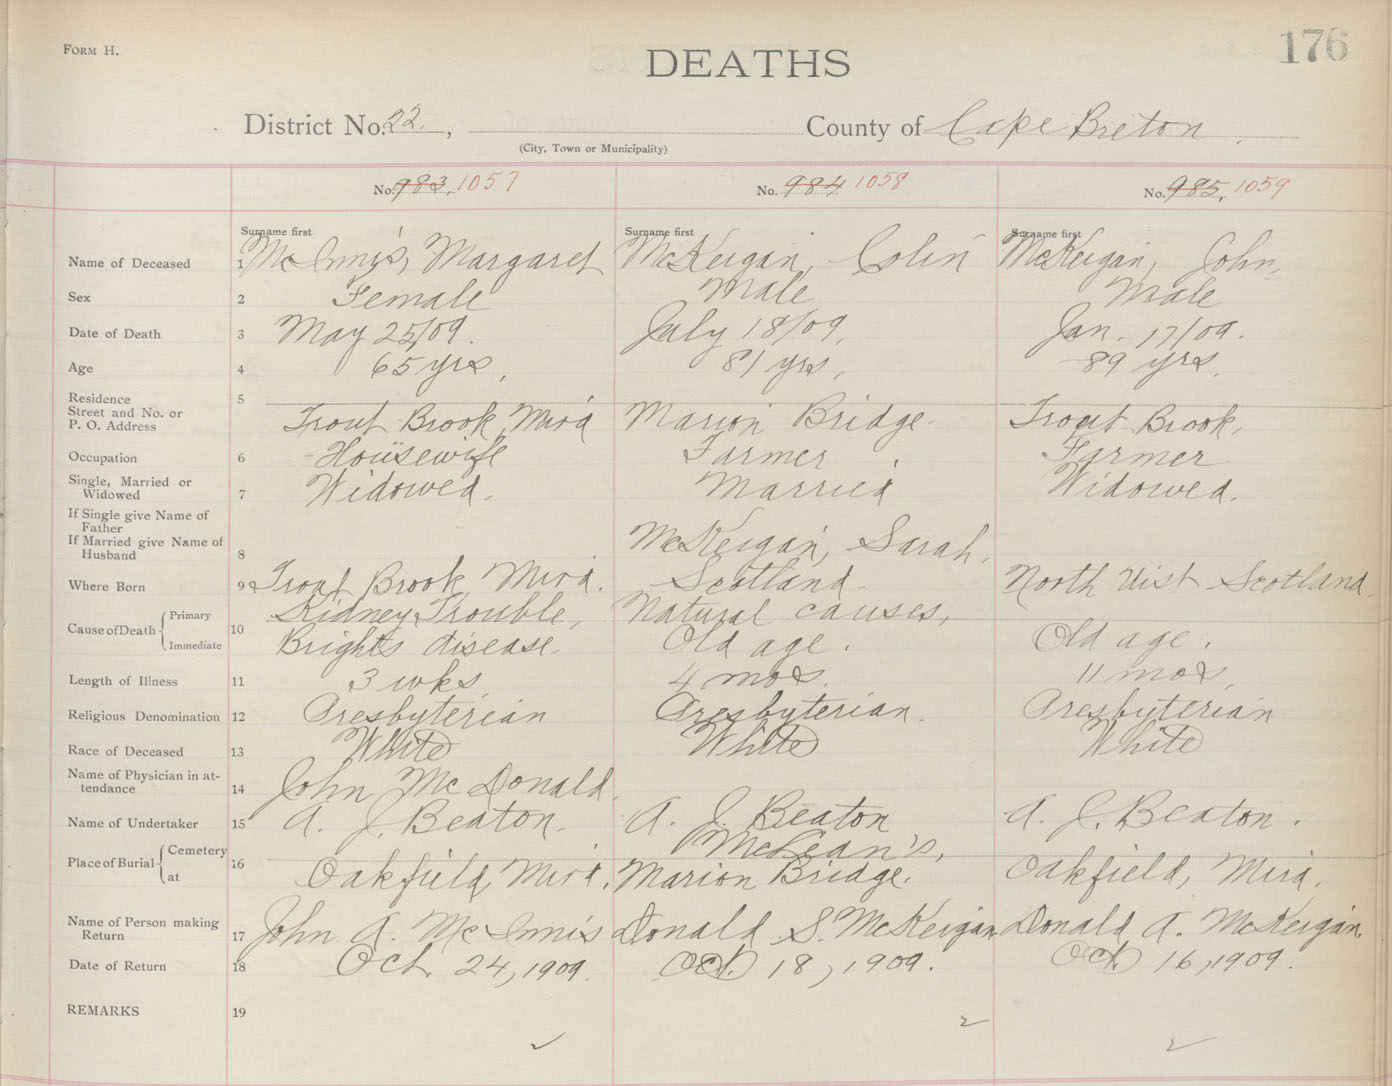 FORM H.
176
DEATHS
District No. 22. , County of Cape Breton.
(City, Town or Municipality)
No. 983. 1057 No. 984 1058 No. 985. 1059
Surname first Surname first Surname first
Name of Deceased 1 McInnis, Margaret McKeigan, Colin McKeigan, John,
Sex 2 Female Male Male
Date of Death 3 May 25/09. July 18/09, Jan. 17/09.
Age 4 65 yrs, 81 yrs, 89 yrs.
Residence 5
Street and No. or
P. O. Address Trout Brook, Mira Marion Bridge. Trout Brook,
Occupation 6 Housewife Farmer Farmer
Single, Married or
Widowed 7 Widowed. Married Widowed.
If Single give Name of
Father
If Married give Name of
Husband 8 McKeigan, Sarah.
Where Born 9 Trout Brook Mira. Scotland North Uist Scotland.
Cause of Death Primary Kidney Trouble, Natural causes,
Immediate 10 Brights disease. Old age. Old age.
Length of Illness 11 3 wks. 4 mos. 11 mos,
Religious Denomination 12 Presbyterian Presbyterian. Presbyterian
Race of Deceased 13 White White White
Name of Physician in at-
tendance 14 John McDonald.
Name of Undertaker 15 A. J. Beaton. A. J. Beaton A. J. Beaton.
Place of Burial Cemetery 16 McLean's,
at Oakfield, Mira. Marion Bridge. Oakfield, Mira.
Name of Person making
Return 17 John A. McInnis Donald S. McKeigan Donald A. McKeigan.
Date of Return 18 Oct. 24, 1909. Oct. 18, 1909. Oct. 16, 1909.
REMARKS 19